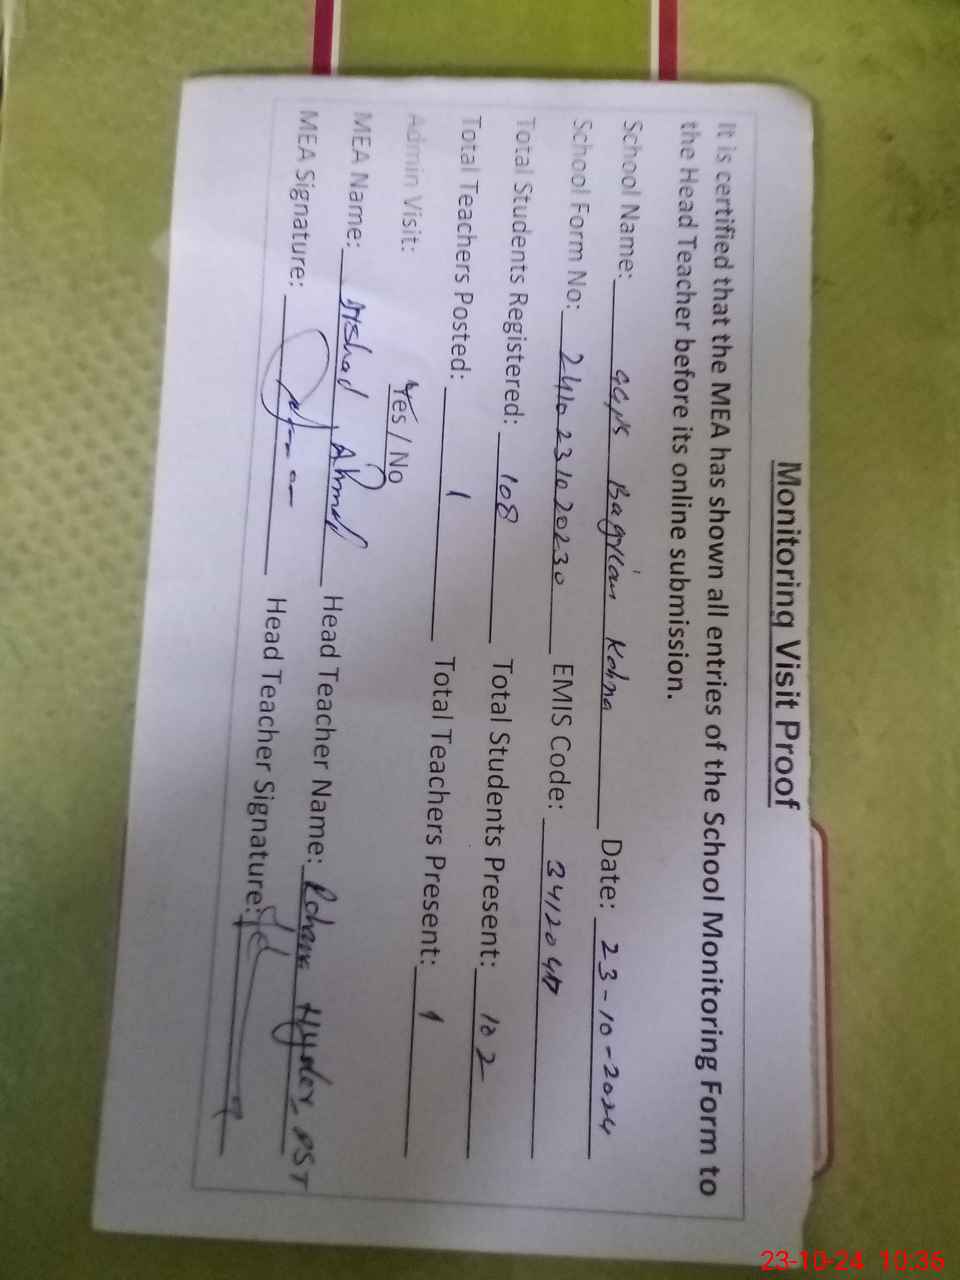 Monitoring Visit Proof
It is certified that the MEA has shown all entries of the School Monitoring Form to
the Head Teacher before its online submission.
School Name: GGPS Kohna Date: 23-10-2024
School Form No: EMIS Code:
Total Students Registered: 108 Total Students Present: 102
Total Teachers Posted: 1 Total Teachers Present: 1
Admin Visit: Yes / No
MEA Name: Arshad Ahmad Head Teacher Name: Hyder, PST
MEA Signature: Head Teacher Signature:
23-10-24 10:36